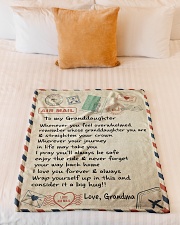 AIR MAIL
To my Granddaughter
Whenever you feel overwhelmed,
remember whose granddaughter you are
& straighten your crown
Wherever your journey
in life may take you
I pray you'll always be safe
enjoy the ride & never forget
your way back home
I love you forever & always
Wrap yourself up in this and
consider it a big hug!!
Love, Grandma